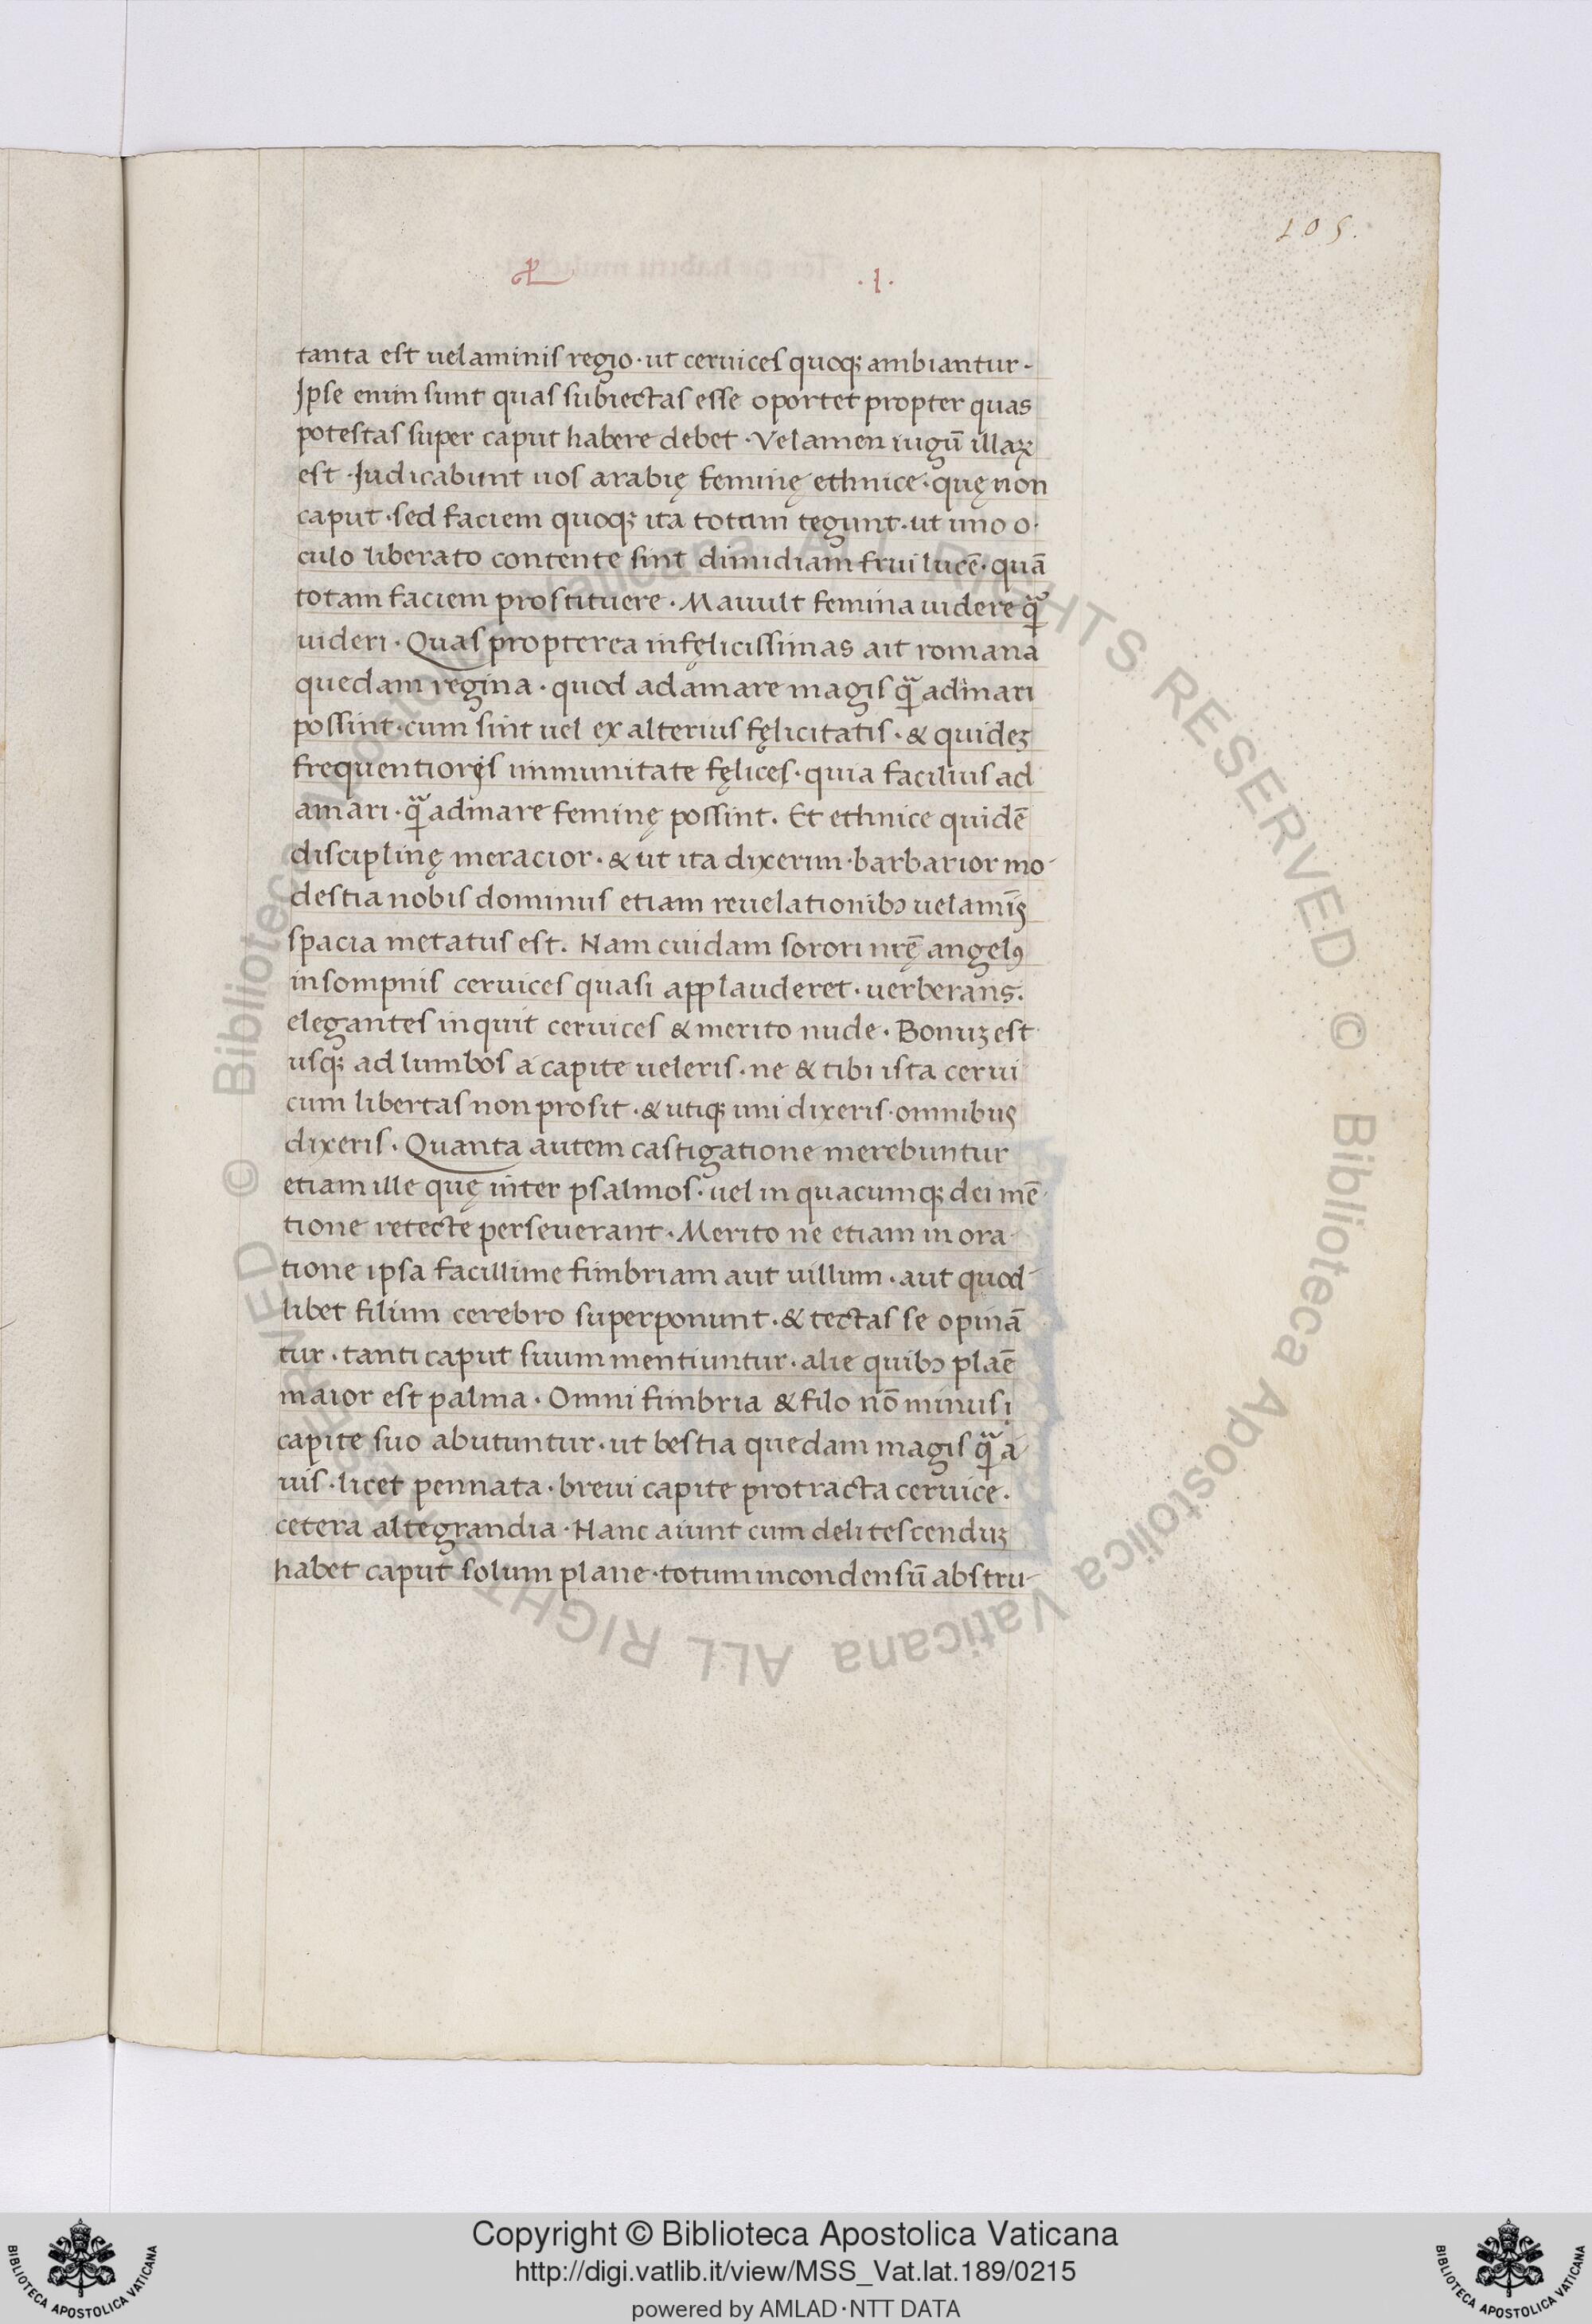 105.
.1.
tanta est uelaminis regio · ut ceruices quoqꝫ ambiantur ·
Ipse enim sunt quas subiectas esse oportet propter quas
potestas super caput habere debet · Velamen iugū illaꝝ
est · Iudicabunt uos arabię feminę ethnice · quę non
caput · sed faciem quoqꝫ ita totam tegunt · ut uno o-
culo liberato contente sint dimidiam frui lucē · quā
totam faciem prostituere · Mauult femina uidere q̃
uideri · Quas propterea infęlicissimas ait romana
quedam regina · quod adamare magis q̃ adamari
possint · cum sint uel ex alterius fęlicitatis · & quideꝫ
frequentioris immunitate fęlices · quia facilius ad
amari · q̃ adamare feminę possint . Et ethnice quidē
disciplinę meracior · & ut ita dixerim · barbarior mo-
destia nobis dominus etiam reuelationibꝫ uelamīs
spacia metatus est . Nam cuidam sorori nr̄ę angelꝰ
insompnis ceruices quasi applauderet · uerberans .
elegantes inquit ceruices & merito nude · Bonuꝫ est
usqꝫ ad lumbos a capite ueleris · ne & tibi ista cerui
cum libertas non prosit · & utiqꝫ uni dixeris · omnibus
dixeris · Quanta autem castigatione merebuntur
etiam ille quę inter psalmos · uel in quacumqꝫ dei mē-
tione retecte perseuerant · Merito ne etiam in ora-
tione ipsa facillime fimbriam aut uillum · aut quod-
libet filum cerebro superponunt · & tectas se opinā
tur · tanti caput suum mentiuntur · alie quibꝫ plaē
maior est palma · Omni fimbria & filo nō minus i
capite suo abutuntur · ut bestia quedam magis q̃ a-
uis · licet pennata · breui capite protracta ceruice ·
cetera altegrandia · Hanc aiunt cum delitescenduꝫ
habet caput solum plane · totum incondensū abstru-
Copyright © Biblioteca Apostolica Vaticana
http://digi.vatlib.it/view/MSS_Vat.lat.189/0215
powered by AMLAD·NTT DATA
BIBLIOTECA APOSTOLICA VATICANA
BIBLIOTECA APOSTOLICA VATICANA
© Biblioteca Apostolica Vaticana ALL RIGHTS RESERVED © Biblioteca Apostolica Vaticana ALL RIGHTS RESERVED